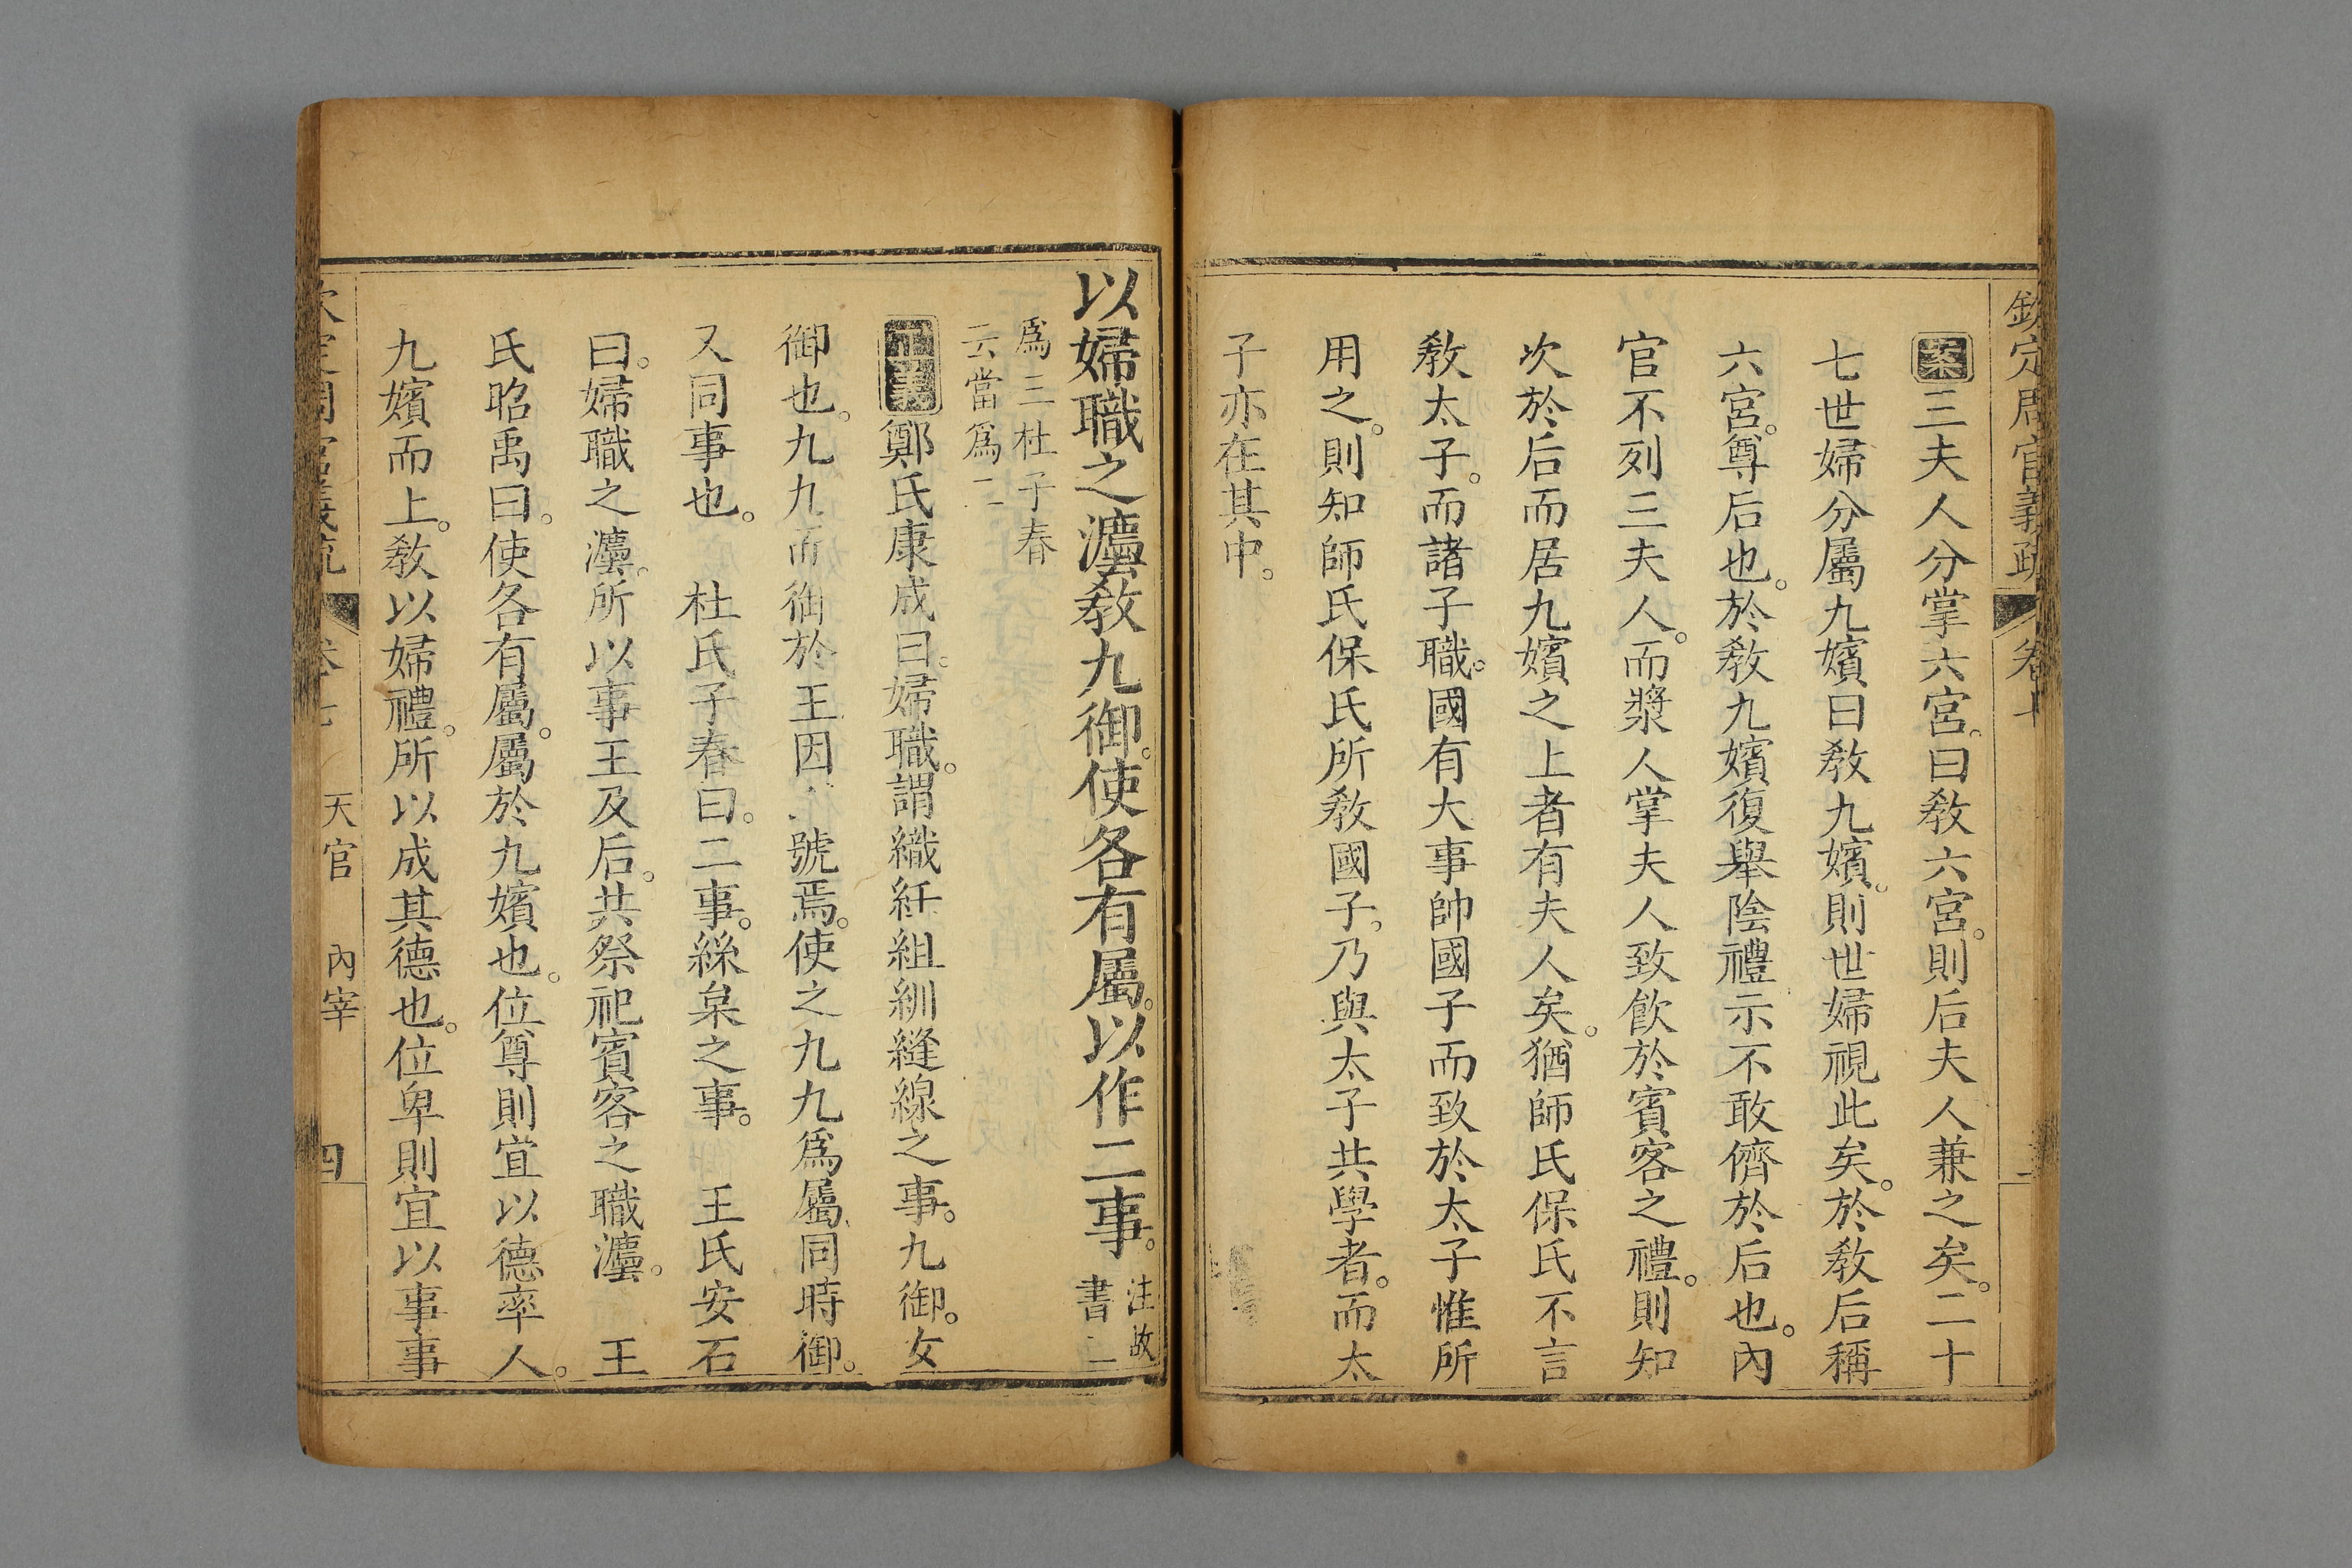 欽定周官義疏 卷七
案三夫人分掌六宮。曰敎六宮。則后夫人兼之矣。二十
七世婦分屬九嬪曰敎九嬪。則世婦視此矣。於敎后稱
六宮。尊后也。於敎九嬪復舉陰禮示不敢儕於后也。內
官不列三夫人。而漿人掌夫人致飮於賓客之禮。則知
次於后而居九嬪之上者有夫人矣。猶師氏保氏不言
敎太子。而諸子職。國有大事帥國子而致於太子惟所
用之。則知師氏保氏所敎國子。乃與太子共學者。而太
子亦在其中。
以婦職之灋敎九御。使各有屬。以作二事。注故書二
爲三杜子春
云當爲二
正義鄭氏康成曰。婦職。謂織紝組紃縫線之事。九御。女
御也。九九而御於王因 號焉。使之九九爲屬同時御。
又同事也。 杜氏子春曰。二事。絲枲之事。 王氏安石
曰。婦職之灋。所以事王及后。共祭祀賓客之職灋。 王
氏昭禹曰。使各有屬。屬於九嬪也。位尊則宜以德率人。
九嬪而上。敎以婦禮。所以成其德也。位卑則宜以事事
欽定周官義疏 卷七 天官 內宰 四